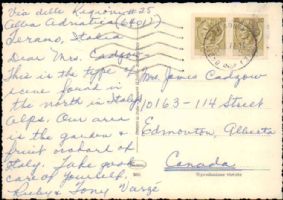 Via delle Regioni #25
Alba Adriatica (64011)
Terano, Italia
Dear Mrs. Cadzow
This is the type of
scene found in
the north in Italy
Alps. Our area
is the garden &
fruit orchard of
Italy. Take good
care of yourself.
Ruby & Tony
Mrs. James Cadzow
10163-114 Street
Edmonton, Alberta
Canada
Riproduzione vietata